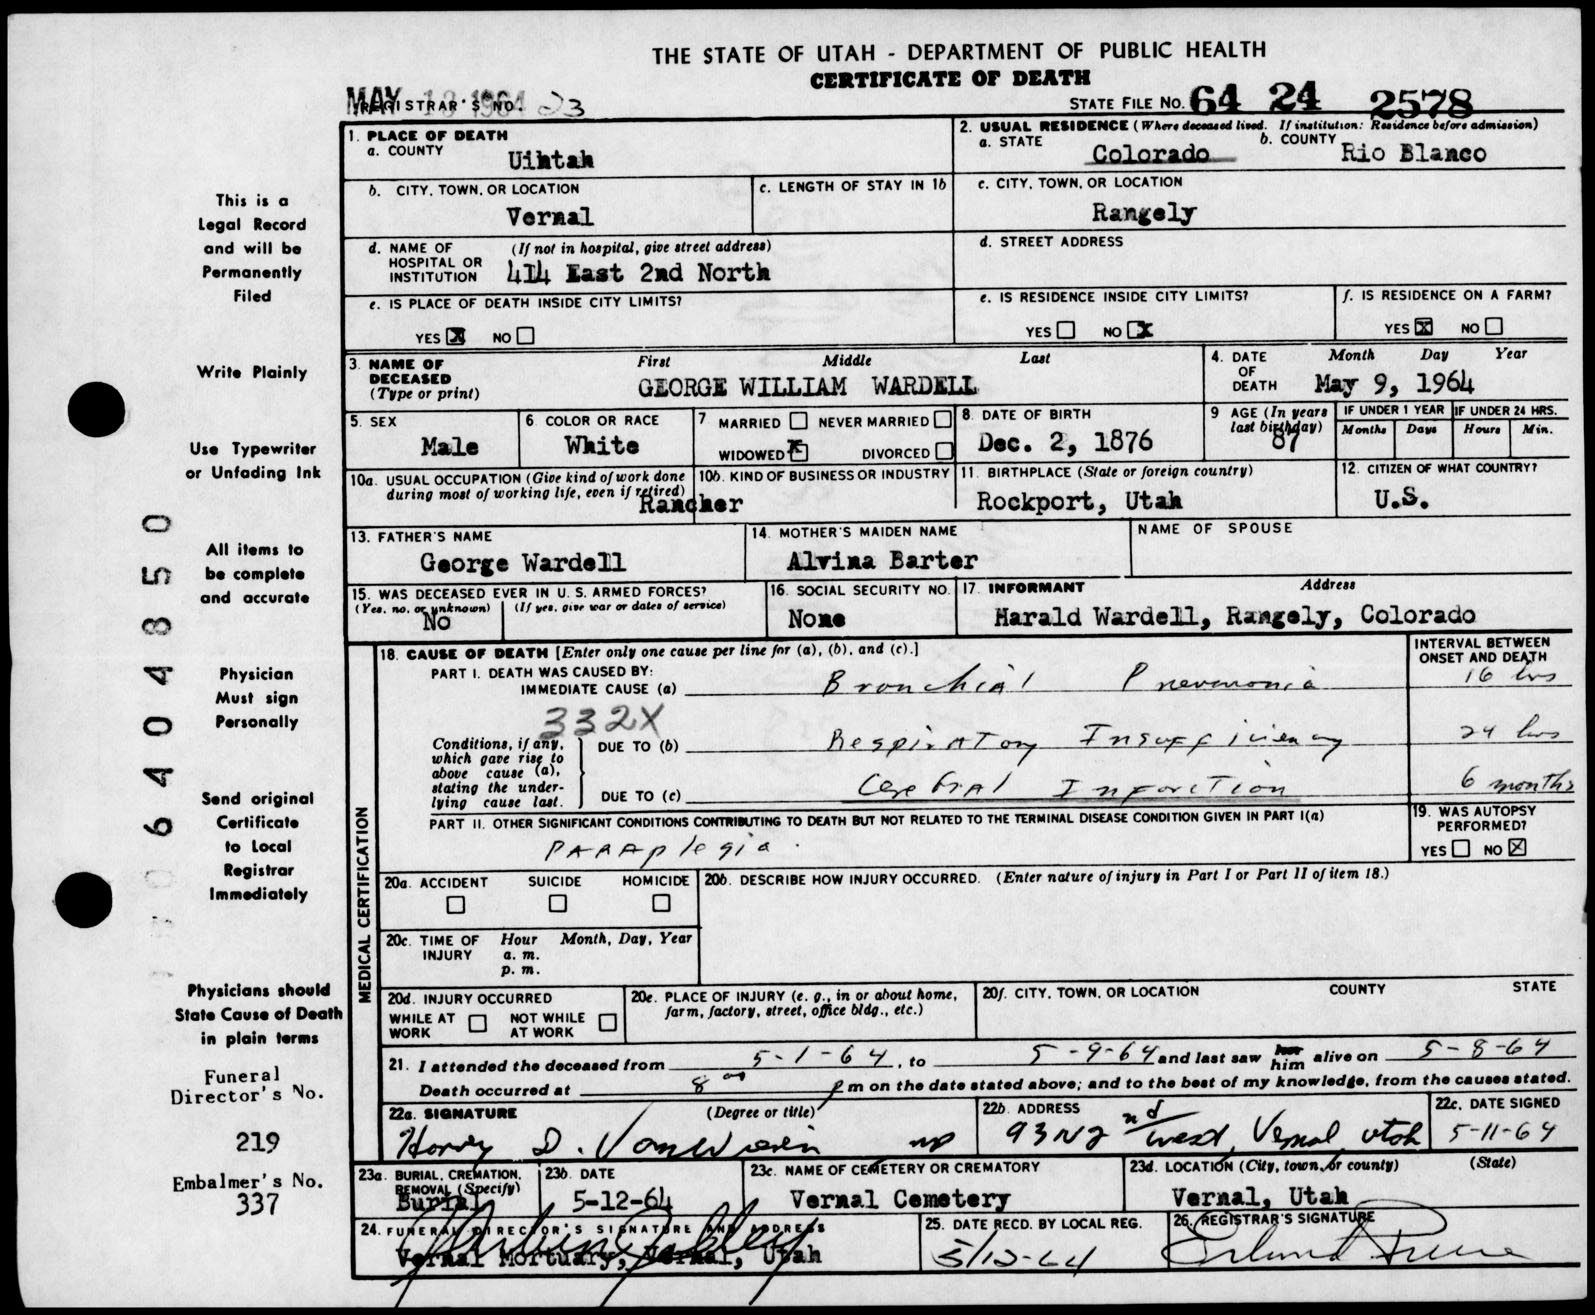 THE STATE OF UTAH - DEPARTMENT OF PUBLIC HEALTH
CERTIFICATE OF DEATH
MAY 13 1964
REGISTRAR'S NO. 23
STATE FILE NO. 64 24 2578
1. PLACE OF DEATH
a. COUNTY
Uihtah
2. USUAL RESIDENCE (Where deceased lived. If institution: Residence before admission)
a. STATE Colorado b. COUNTY Rio Blanco
b. CITY, TOWN, OR LOCATION
Vernal
c. LENGTH OF STAY IN 1b
c. CITY, TOWN, OR LOCATION
Rangely
d. NAME OF HOSPITAL OR INSTITUTION (If not in hospital, give street address)
414 East 2nd North
d. STREET ADDRESS
e. IS PLACE OF DEATH INSIDE CITY LIMITS?
YES X NO
e. IS RESIDENCE INSIDE CITY LIMITS?
YES NO X
f. IS RESIDENCE ON A FARM?
YES X NO
3. NAME OF DECEASED (Type or print)
First Middle Last
GEORGE WILLIAM WARDELL
4. DATE OF DEATH
Month Day Year
May 9, 1964
5. SEX
Male
6. COLOR OR RACE
White
7 MARRIED NEVER MARRIED
WIDOWED X DIVORCED
8. DATE OF BIRTH
Dec. 2, 1876
9 AGE (In years last birthday)
87
IF UNDER 1 YEAR
Months Days
IF UNDER 24 HRS.
Hours Min.
10a. USUAL OCCUPATION (Give kind of work done during most of working life, even if retired)
Rancher
10b. KIND OF BUSINESS OR INDUSTRY
11. BIRTHPLACE (State or foreign country)
Rockport, Utah
12. CITIZEN OF WHAT COUNTRY?
U.S.
13. FATHER'S NAME
George Wardell
14. MOTHER'S MAIDEN NAME
Alvina Barter
NAME OF SPOUSE
15. WAS DECEASED EVER IN U. S. ARMED FORCES?
(Yes, no, or unknown) (If yes, give war or dates of service)
No
16. SOCIAL SECURITY NO.
None
17. INFORMANT Address
Harald Wardell, Rangely, Colorado
18. CAUSE OF DEATH [Enter only one cause per line for (a), (b), and (c).]
INTERVAL BETWEEN ONSET AND DEATH
PART I. DEATH WAS CAUSED BY:
IMMEDIATE CAUSE (a) Bronchial Pneumonia 16 hrs
332X
Conditions, if any, which gave rise to above cause (a), stating the underlying cause last.
DUE TO (b) Respiratory Insufficiency 24 hrs
DUE TO (c) Cerebral Infarction 6 months
PART II. OTHER SIGNIFICANT CONDITIONS CONTRIBUTING TO DEATH BUT NOT RELATED TO THE TERMINAL DISEASE CONDITION GIVEN IN PART I(a)
Paraplegia.
19. WAS AUTOPSY PERFORMED?
YES NO X
MEDICAL CERTIFICATION
20a. ACCIDENT SUICIDE HOMICIDE
20b. DESCRIBE HOW INJURY OCCURRED. (Enter nature of injury in Part I or Part II of item 18.)
20c. TIME OF INJURY Hour Month, Day, Year
a. m.
p. m.
20d. INJURY OCCURRED
WHILE AT WORK NOT WHILE AT WORK
20e. PLACE OF INJURY (e. g., in or about home, farm, factory, street, office bldg., etc.)
20f. CITY, TOWN, OR LOCATION COUNTY STATE
21. I attended the deceased from 5-1-64, to 5-9-64 and last saw her him alive on 5-8-64
Death occurred at 8 00 p m on the date stated above; and to the best of my knowledge, from the causes stated.
22a. SIGNATURE (Degree or title)
D. MD
22b. ADDRESS
93 N 2nd West, Vernal Utah
22c. DATE SIGNED
5-11-64
23a. BURIAL, CREMATION, REMOVAL (Specify)
Burial
23b. DATE
5-12-64
23c. NAME OF CEMETERY OR CREMATORY
Vernal Cemetery
23d. LOCATION (City, town, or county) (State)
Vernal, Utah
24. FUNERAL DIRECTOR'S SIGNATURE AND ADDRESS
Vernal Mortuary, Vernal, Utah
25. DATE RECD. BY LOCAL REG.
5/12-64
26. REGISTRAR'S SIGNATURE
This is a
Legal Record
and will be
Permanently
Filed
Write Plainly
Use Typewriter
or Unfading Ink
All items to
be complete
and accurate
Physician
Must sign
Personally
Send original
Certificate
to Local
Registrar
Immediately
Physicians should
State Cause of Death
in plain terms
Funeral
Director's No.
219
Embalmer's No.
337
6404850